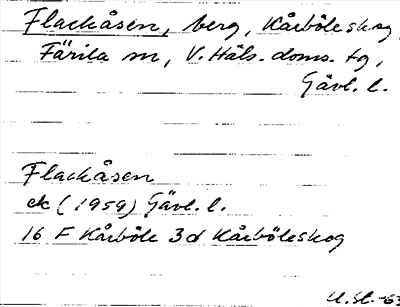 Flackåsen, berg, Kårböleskog,
Färila sn, V. Häls. doms. tg,
Gävl. l.
Flackåsen
ek (1959) Gävl. l.
16 F Kårböle 3d Kårböleskog
U.St. -63